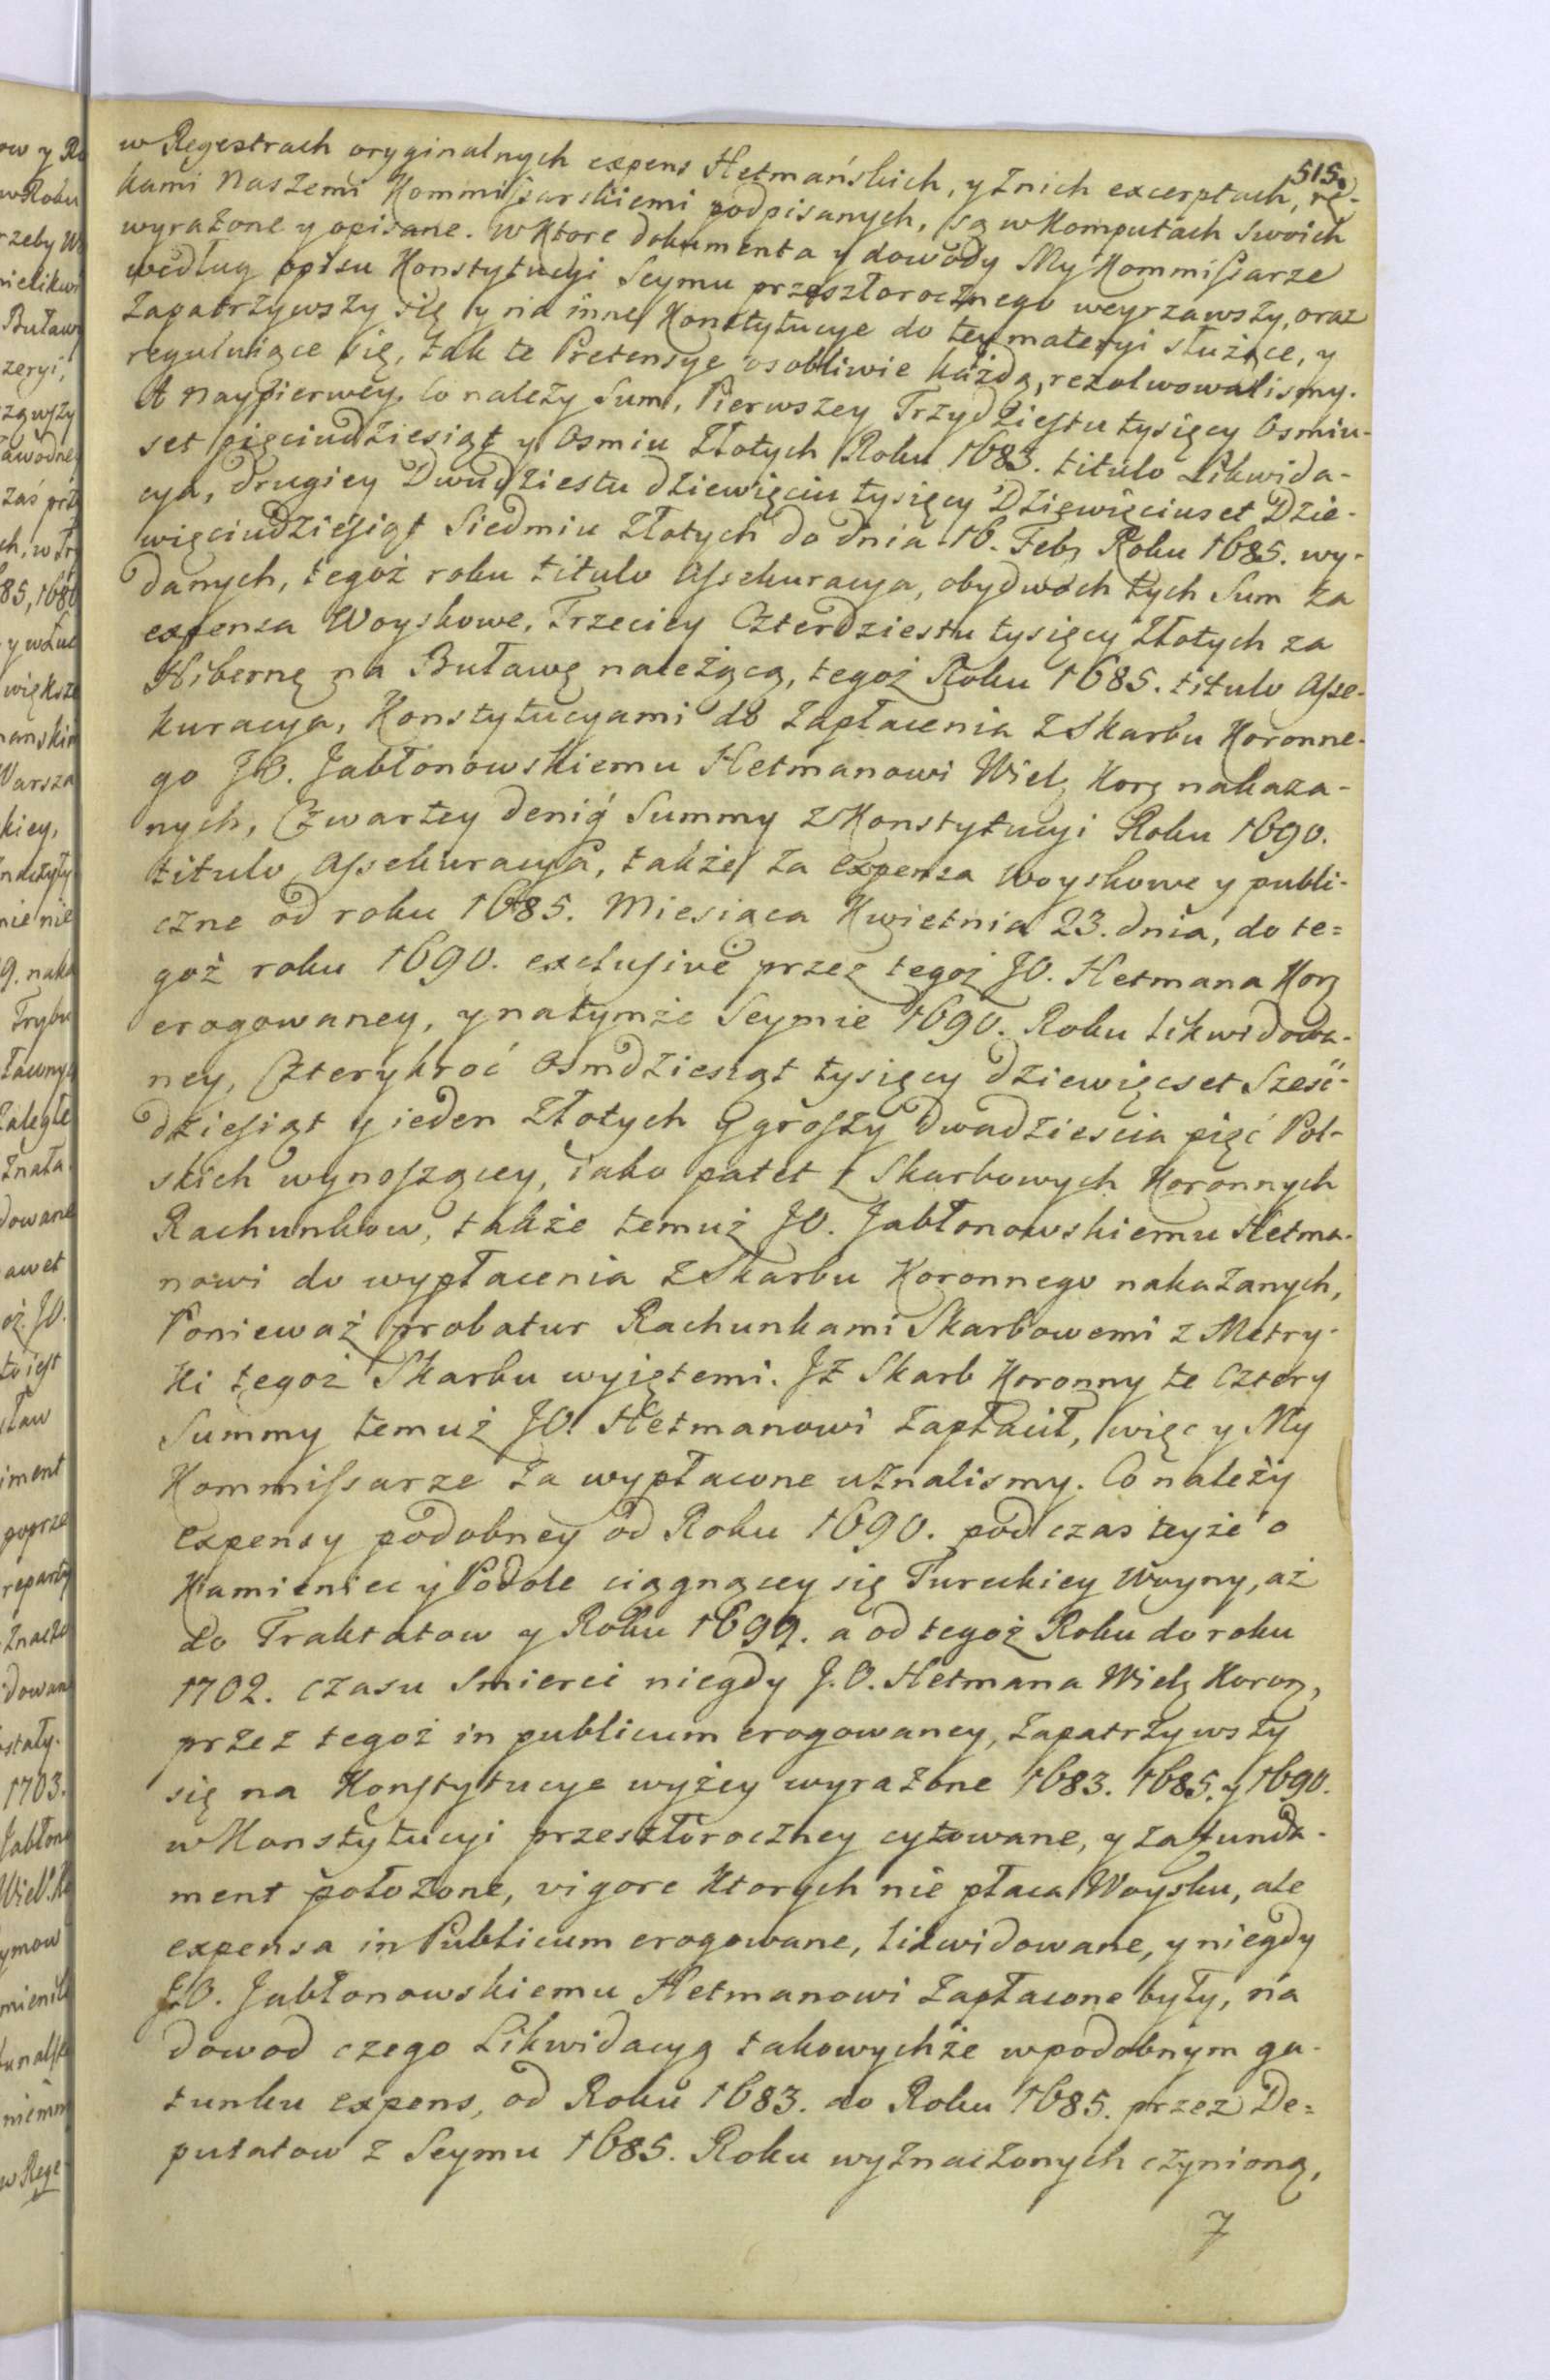 515.
w Regestrach oryginalnych expens Hetmańskich, y z nich excerptach, rę-
kami Naszemi Kommissarskiemi podpisanych, są w Komputach swoich
wyrażone y opisane. W ktore dokumenta y dowody My Kommissarze
według opisu Konstytucyi Seymu przeszłorocznego weyrzawszy, oraz
zapatrzywszy się y na inne Konstytucye do tey materyi służące, y
reguluiące się, tak te Pretensye osobliwie każdą, rezolwowalismy.
A naypierwey. Co należy Sum, Pierwszey Trzydziestu tysięcy Osmiu-
set pięciudziesiąt y Osmiu Złotych Roku 1683. titulo Likwida-
cya, drugiey Dwudziestu dziewięciu tysięcy Dziewięciuset Dzie-
więciudziesiąt Siedmiu Złotych do dnia 16. Febr Roku 1685. wy-
danych, tegoż roku titulo Assekuracya, obydwóch tych Sum za
expensa Woyskowe, Trzeciey Czterdziestu tysięcy Złotych za
Hibernę na Buławę należącą, tegoż Roku 1685. titulo Asse-
kuracya, Konstytucyami do zapłacenia z Skarbu Koronne-
go JO. Jabłonowskiemu Hetmanowi Wielg Korg nakaza-
nych, Czwartey denią Summy z Konstytucyi Roku 1690.
titulo Assekuracya, także za Expensa Woyskowe y publi-
czne od roku 1685. Miesiąca Kwietnia 23. dnia, do te=
goż roku 1690. exclusive przez tegoż JO. Hetmana Korg
erogowaney, y na tymże Seymie 1690. Roku likwidowa-
ney, Czterykroć Osmdziesiąt tysięcy dziewięcset Sześć-
dziesiąt y ieden Złotych Ggroszy dwadziescia pięć Pol-
skich wynoszącey, iako patet z Skarbowych Koronnych
Rachunkow, także temuż JO. Jabłonowskiemu Hetma-
nowi do wypłacenia z Skarbu Koronnego nakazanych,
Ponieważ probatur Rachunkami Skarbowemi z Metry-
ki tegoż Skarbu wyiętemi. Jż Skarb Koronny te Cztery
Summy temuż JO. Hetmanowi zapłacił, więc y My
Kommissarze za wypłacone uznalismy. Co należy
Expensy podobney od Roku 1690. podczas teyże o
Kamieniec y Podole ciągnącey się Tureckiey Woyny, aż
do Traktatow y Roku 1699. a od tegoż Roku do roku
1702. czasu Smierci niegdy J.O. Hetmana Wielg Korong,
przez tegoż in publicum erogowaney, zapatrzywszy
się na Konstytucye wyżey wyrażone 1683. 1685. y 1690.
w Konstytucyi przeszłoroczney cytowane, y za funda-
ment położone, vigore ktorych nie płaca Woysku, ale
expensa in Publicum erogowane, likwidowane, y niegdy
J.O. Jabłonowskiemu Hetmanowi zapłacone były, na
dowod czego Likwidacyą takowychże w podobnym ga-
tunku expens, od Roku 1683. do Roku 1685. przez De=
putatow z Seymu 1685. Roku wyznaczonych czynioną,
7